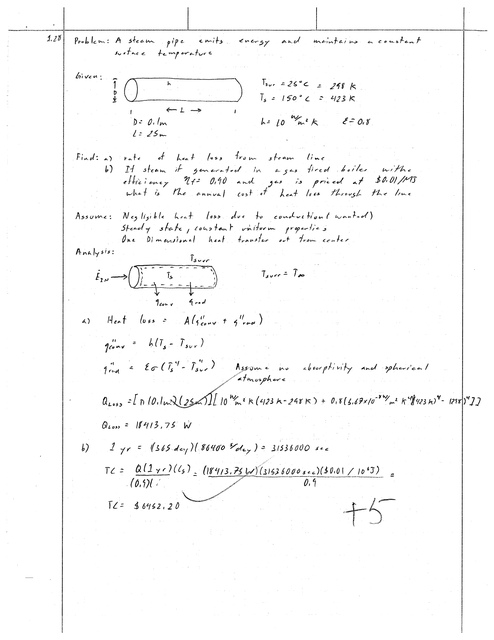 1.28 Problem: A steam pipe emits energy and maintains a constant
surface temperature
Given:
h
D
← L →
D = 0.1m
L = 25m
Tsur = 25°C = 298 K
Ts = 150°C = 423 K
h = 10 W/m² K   ε = 0.8
Find: a) rate of heat loss from steam line
b) If steam if generated in a gas fired boiler with
efficiency ηf = 0.90 and gas is priced at $0.01/MJ
what is the annual cost of heat loss through the line
Assume: Negligible heat loss due to conduction
Steady state, constant uniform properties
One Dimensional heat transfer out from center
Analysis:
Tsurr
ĖIN → Ts
Tsurr = T∞
qconv qrad
a) Heat loss = A(q"conv + q"rad)
q"conv = h(Ts - Tsur)
q"rad = εσ(Ts⁴ - Tsur⁴) Assume no absorptivity and spherical
atmosphere
QLoss = [π(0.1m)(25m)][10 W/m² K(423K-298K) + 0.8(5.67x10⁻⁸ W/m² K⁴)(423⁴ - 298⁴)]
QLoss = 18413.75 W
b) 1 yr = (365 day)(86400 s/day) = 31536000 sec
TC = Q(1yr)(Cs)/(0.9) = (18413.75 W)(31536000 sec)($0.01 / 10⁶J)/0.9 =
TC = $6452.20
+5